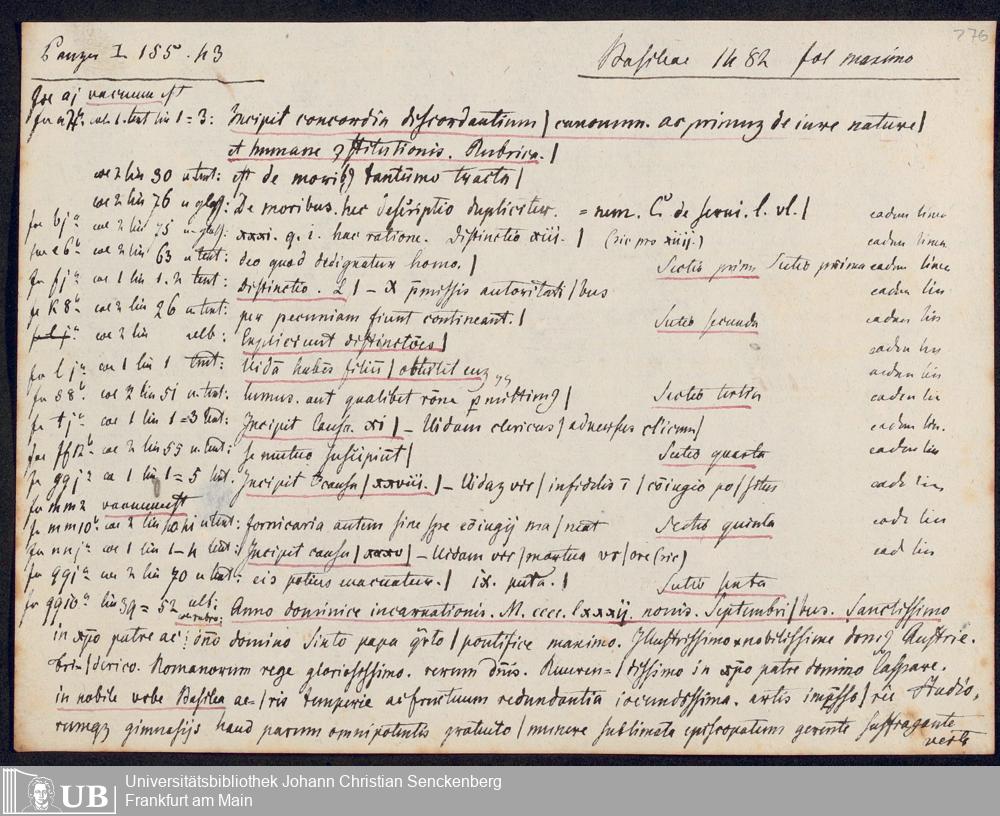 276
Panzer I 155. 43 Basileae 1482 fol maximo
fol aj vacuum est
col 1. text lin 1=3: Incipit concordia discordantium | canonum. ac primuz de iure nature |
et humane ꝯstitutionis. Rubrica. |
col 2 lin 30 u text: est de moribꝫ tantumo tracta |
col 2 lin 76 u gloss: De moribus. hec descriptio dupliciter. = nem. C. de servi. l. vl. | eadem linea
fol bj a col 2 lin 75 u gloss: xxxi. q. i. hac ratione. Distinctio xiii. | (sic pro xiiij.) eadem linea
fol e 6 b col 2 lin 63 u text: deo quod dedignatur homo. | Sectio prima Sectio prima eadem linea
fol fj a col 1 lin 1. 2 text: Distinctio. L | – x p̄missis autoritati | bus eadem lin
fol k 8 b col 2 lin 26 u text: per pecuniam fiunt contineant. | Sectio secunda eadem lin
col 2 lin alb: Expliciunt distinctões | eadem lin
fol l j a col 1 lin 1 text: Uidā habēs filiū | obtulit euz eadem lin
fol s 8 b col 2 lin 51 u text: lumus. aut qualibet rōne p̄mittimꝫ | Sectio tertia eadem lin
fol t j a col 1 lin 1=3 text: Incipit Causa. xi | – Uidam clericus | adversus clicum | eadem lin.
fol ff 12 b col 2 lin 55 u text: se mutuo suscipiūt | Sectio quarta eadem lin
fol gg j a col 1 lin 1=5 text. Incipit causa | xxviii. | – Uidaz vir | infidelis ī | cōiugio po | situs eade lin
fol mm 2 vacuum est
fol mm 10 b col 2 lin u text: fornicaria autem sine spe cōiugij ma | neat Sectio quinta eade lin
fol nn j a col 1 lin 1–4 text: Incipit causa | xxxv | – Uidam vir | mortua vx | ore (sic) ead lin
fol qq j a col 2 lin 70 u text: eis potius euacuatur. | ix. puta. | Sectio sexta
fol qq 10 a lin 39=52 alb: Anno dominice incarnationis. M. cccc. lxxxij. nonis. Septembri | bus. Sanctissimo
in xp̄o patre ac | dn̄o domino Sixto papa q̄rto | pontifice maximo. Illustrissimo x nobilissime domꝫ Austrie.
fri= | derico. Romanorum rege gloriosissimo. rerum dn̄is. Reueren= | dissimo in xp̄o patre domino Caspare.
in nobile urbe Basilea ae= | ris temperie ac fructuum redundantia iocundissima. artis impsso | rie studio,
rumqꝫ gimnasijs haud parum omnipotentis gratuito | munere sublimata episcopatum gerente suffragante
verte
Universitätsbibliothek Johann Christian Senckenberg
Frankfurt am Main
UB